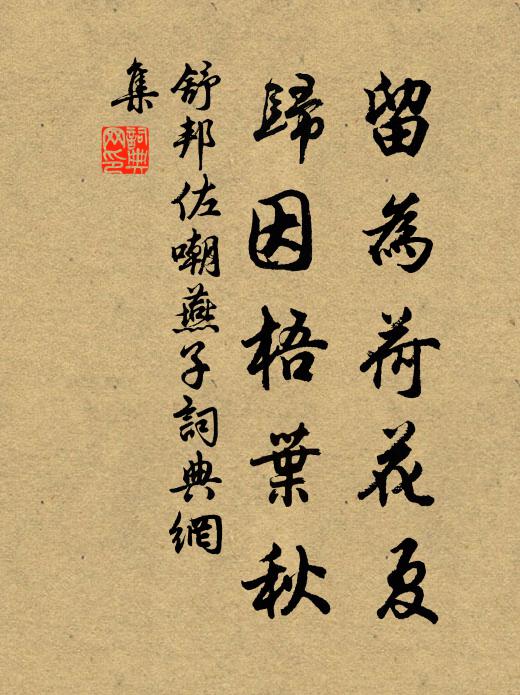 留為荷花夏
歸因梧葉秋
舒邦佐嘲燕子詞典網
集
詞典網印